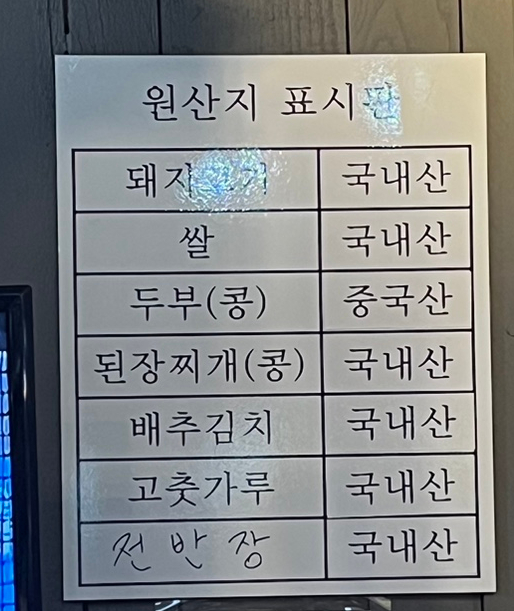 원산지 표시판
돼지고기 국내산
쌀 국내산
두부(콩) 중국산
된장찌개(콩) 국내산
배추김치 국내산
고춧가루 국내산
전반장 국내산